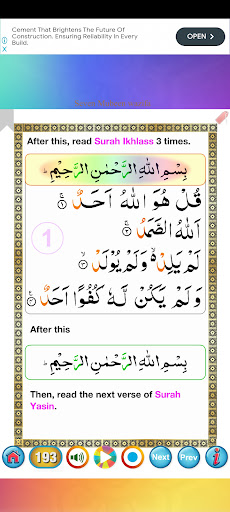 Cement That Brightens The Future Of
Construction. Ensuring Reliability In Every
Build.
OPEN
After this, read Surah Ikhlass 3 times.
بِسْمِ اللهِ الرَّحْمٰنِ الرَّحِيْمِ
قُلْ هُوَ اللهُ اَحَدٌ ۚ ١
اَللهُ الصَّمَدُ ۚ ٢
1
لَمْ يَلِدْ ۙ وَلَمْ يُوْلَدْ ۙ ٣
وَلَمْ يَكُنْ لَّهٗ كُفُوًا اَحَدٌ ۚ
After this
بِسْمِ اللهِ الرَّحْمٰنِ الرَّحِيْمِ
Then, read the next verse of Surah
Yasin.
193
Next
Prev
i